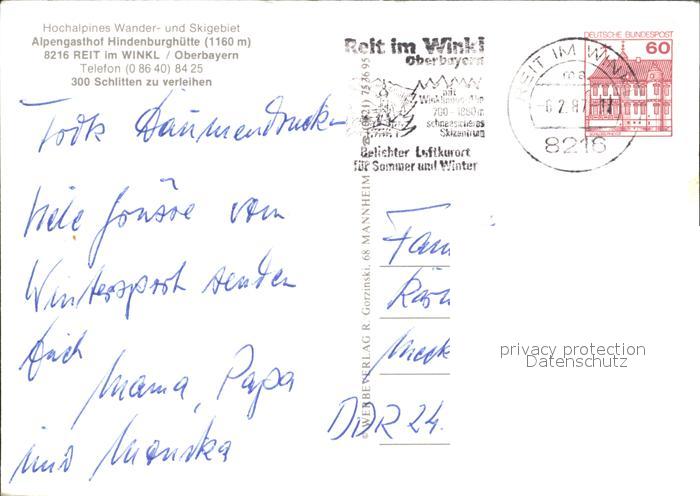 Hochalpines Wander- und Skigebiet
Alpengasthof Hindenburghütte (1160 m)
8216 REIT im WINKL / Oberbayern
Telefon (0 86 40) 84 25
300 Schlitten zu verleihen
Daumendrücken
Viele Grüsse vom
Wintersport senden
Euch
Mama, Papa
und
© WERBEVERLAG R. Gorzinski, 68 MANNHEIM
Reit im Winkl
Oberbayern
mit
700 - 1860 m
schneesicheres
Skizentrum
Beliebter Luftkurort
für Sommer und Winter
REIT IM WINKL
8216
DEUTSCHE BUNDESPOST
60
Fam
DDR 24.
privacy protection
Datenschutz